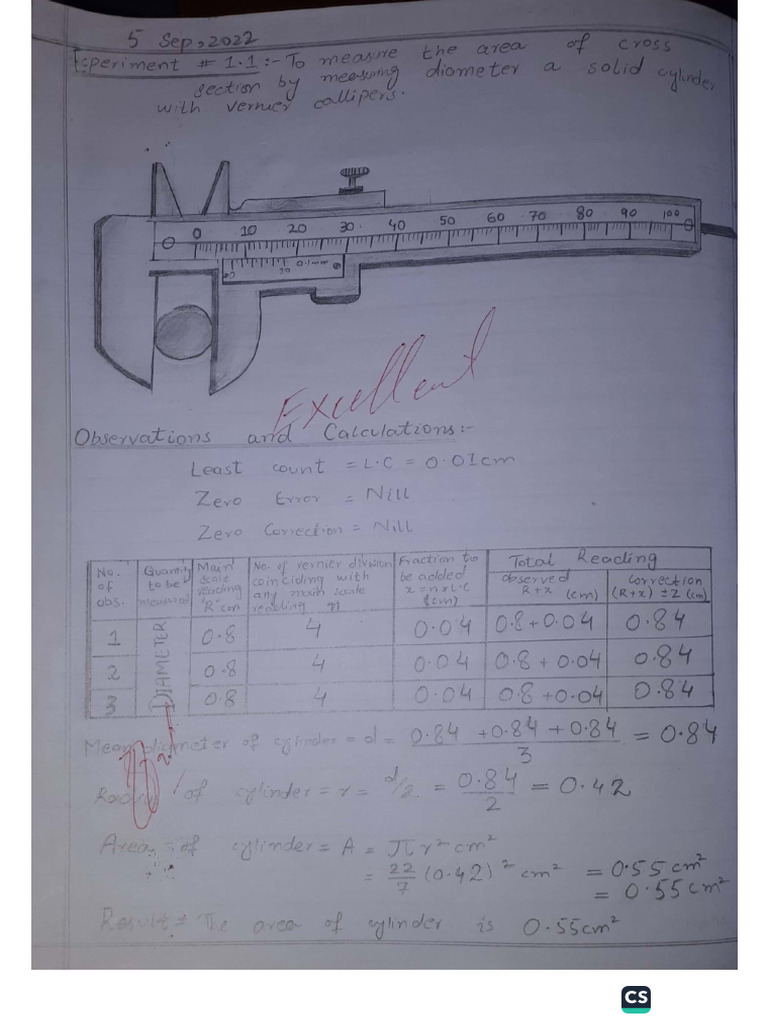 5 Sep, 2022
Experiment # 1.1 :- To measure the area of cross
section by measuring diameter a solid cylinder
with vernier callipers.
0 10 20 30 40 50 60 70 80 90 100
0.1mm
Excellent
Observations and Calculations:-
Least count = L.C = 0.01cm
Zero Error = Nill
Zero Correction = Nill
No. of obs. | Quantity to be measured | Main scale reading "R" cm | No. of vernier division coinciding with any main scale reading n | Fraction to be added x = n x L.C (cm) | Total Reading
observed R+x (cm) | correction (R+x) ± Z (cm)
DIAMETER
1 0.8 4 0.04 0.8+0.04 0.84
2 0.8 4 0.04 0.8 + 0.04 0.84
3 0.8 4 0.04 0.8 +0.04 0.84
Mean diameter of cylinder = d = 0.84 +0.84 + 0.84 / 3 = 0.84
Radius of cylinder = r = d/2 = 0.84 / 2 = 0.42
Area of cylinder = A = πr² cm²
= 22/7 (0.42)² cm² = 0.55 cm²
= 0.55 cm²
Result = The area of cylinder is 0.55cm²
CS